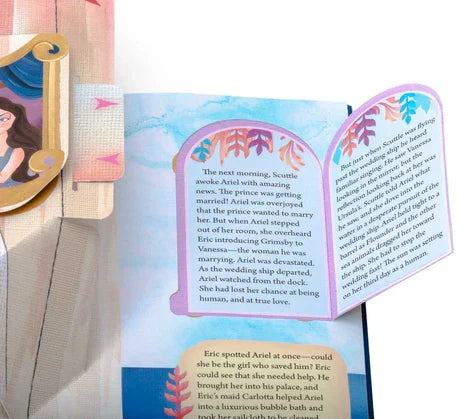 The next morning, Scuttle
awoke Ariel with amazing
news. The prince was getting
married! Ariel was overjoyed
that the prince wanted to marry
her. But when Ariel stepped
out of her room, she overheard
Eric introducing Grimsby to
Vanessa—the woman he was
marrying. Ariel was devastated.
As the wedding ship departed,
Ariel watched from the dock.
She had lost her chance at being
human, and at true love.
But just when Scuttle was flying
past the wedding ship he heard
familiar singing. He saw Vanessa
looking in the mirror: but the
reflection looking back at her was
Ursula's. Scuttle told Ariel what
he saw, and she dove into the
water in a desperate pursuit of the
wedding ship. Ariel held tight to a
barrel as Flounder and the other
sea animals dragged her toward
the ship. She had to stop the
wedding fast! The sun was setting
on her third day as a human.
Eric spotted Ariel at once—could
she be the girl who saved him? Eric
could see that she needed help. He
brought her into his palace, and
and Eric's maid Carlotta helped Ariel
into a luxurious bubble bath and
took her sailcloth to be cleaned